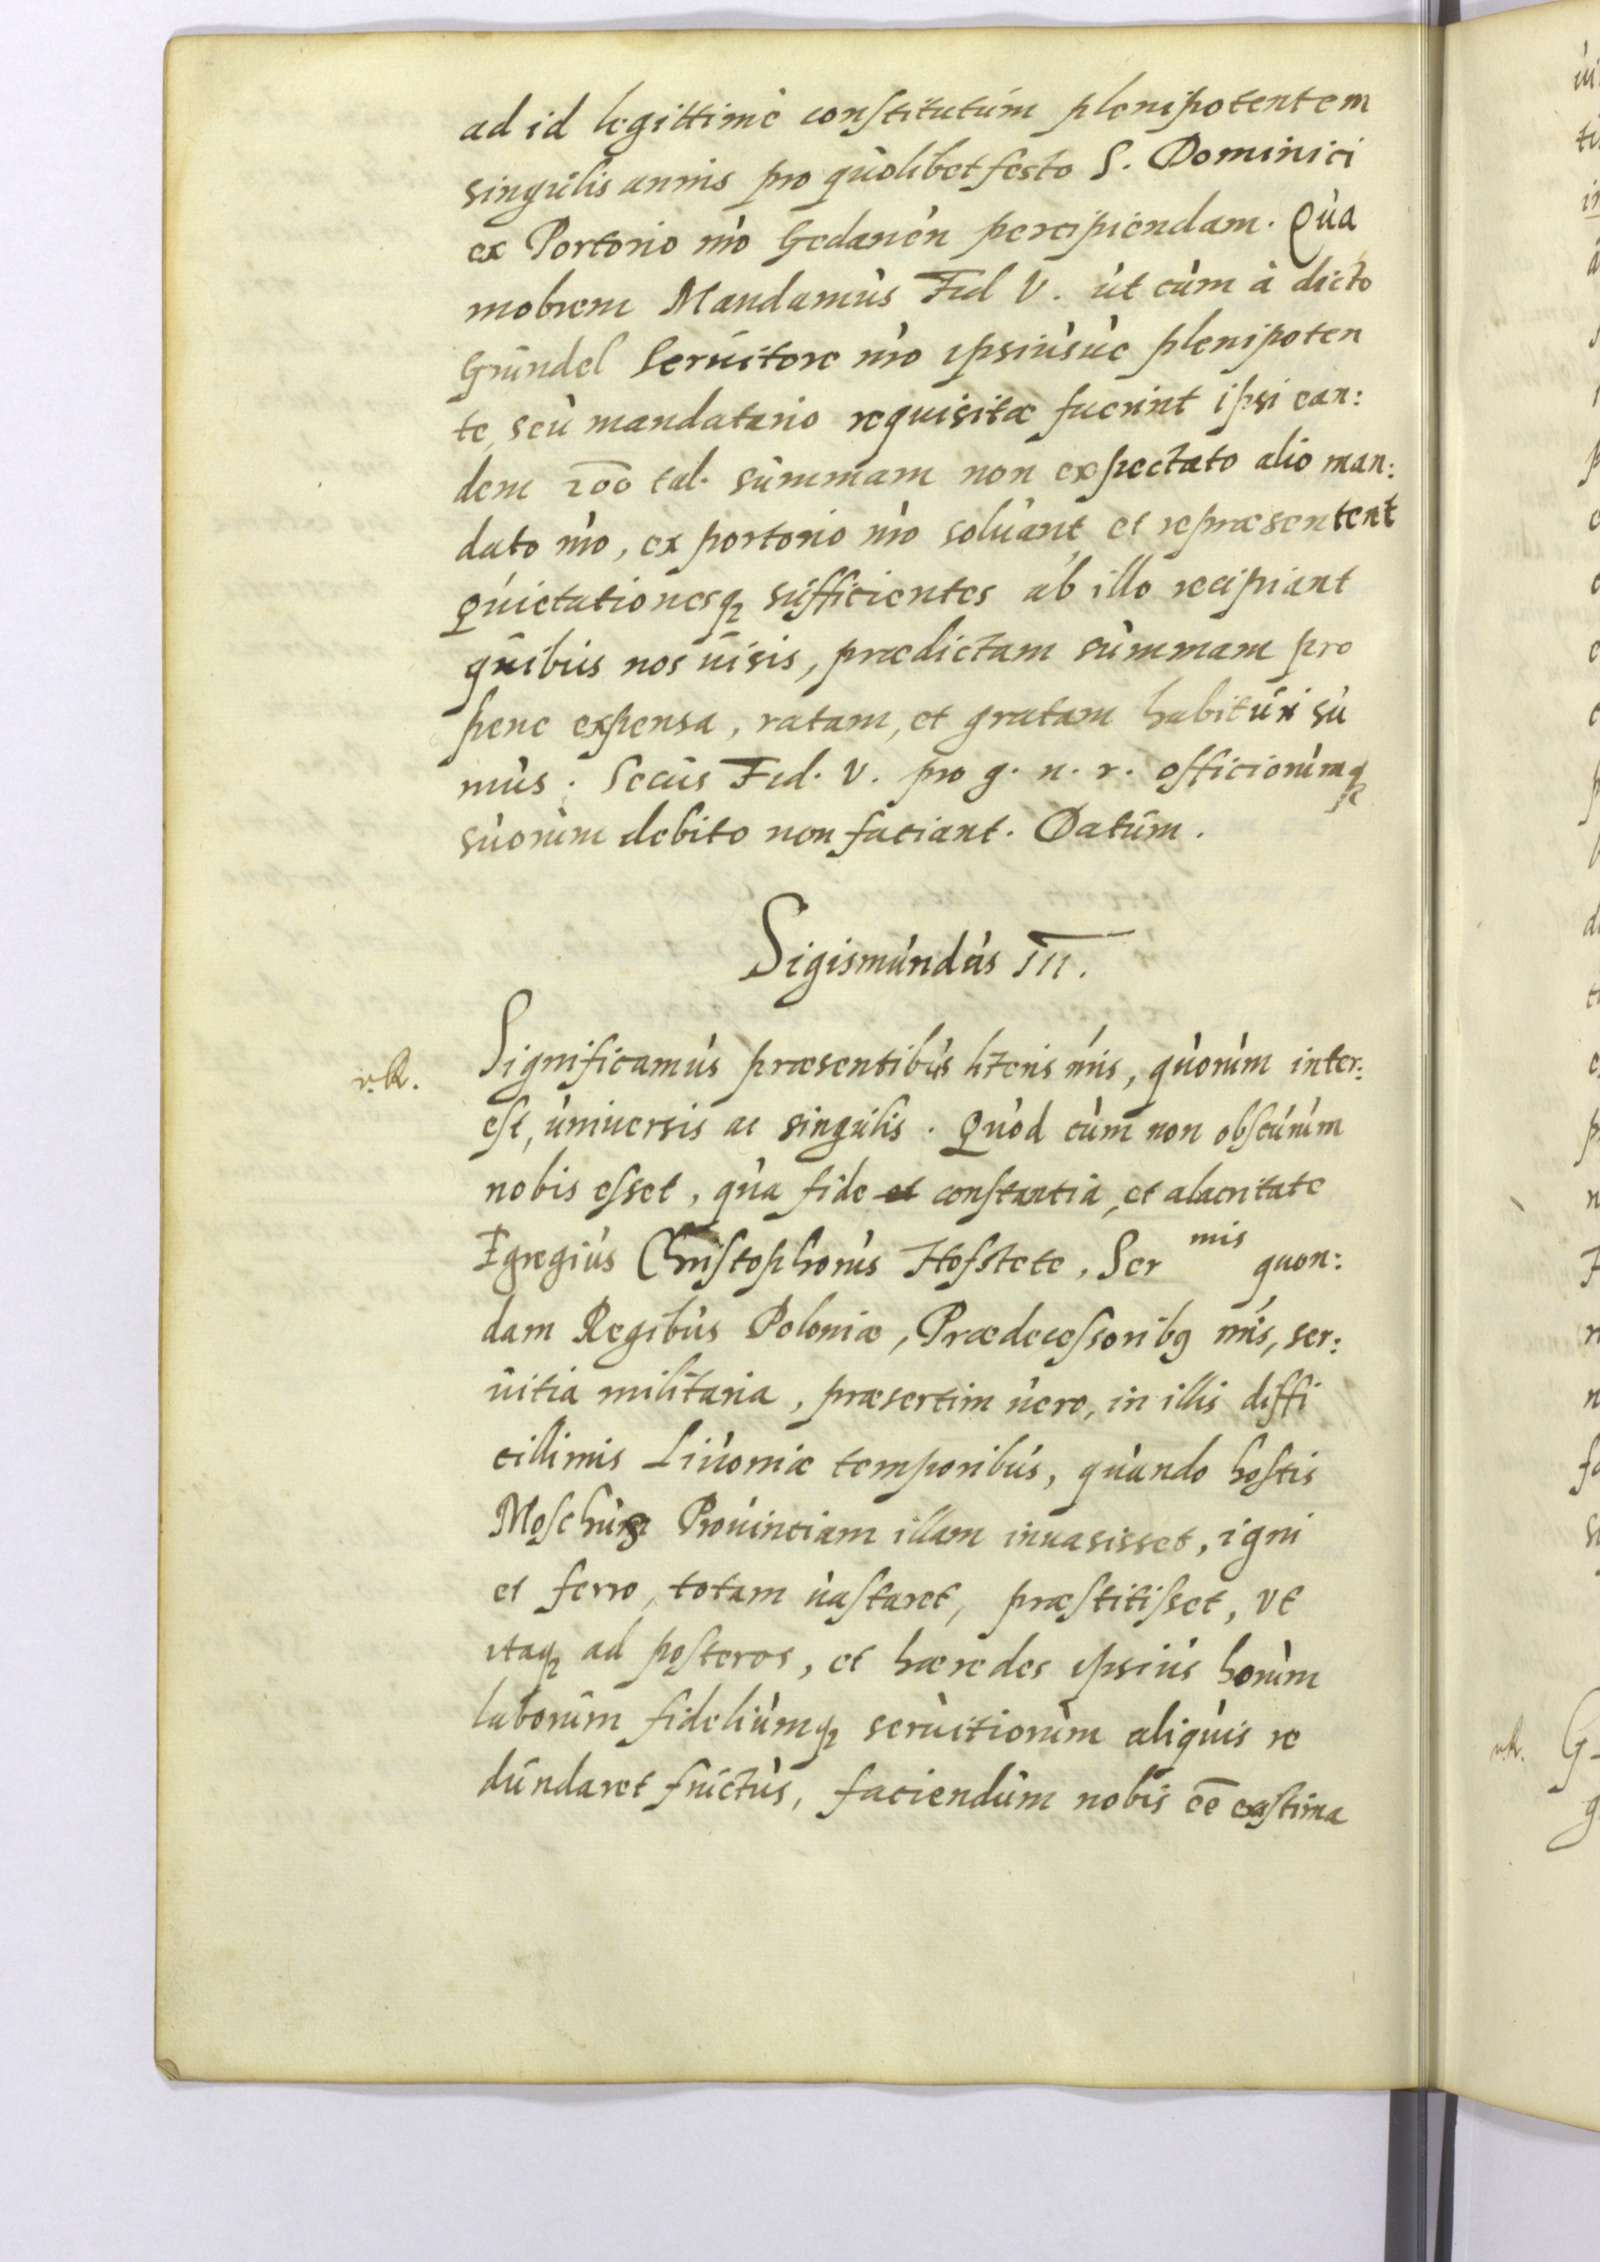 ad id legittime constitutum plenipotentem
singulis annis pro quolibet festo S. Dominici
ex Portorio nro Gedanen percipiendam. Qua
mobrem Mandamus Fid V. ut cum à dicto
Grundel Seruitore nro ipsiusue plenipoten
te, seu mandatario requisitae fuerint ipsi ean:
dem 200 tal. summam non expectato alio man:
dato nro, ex portorio nro soluant et repraesentent
Quietationesq; sufficientes ab illo recipiant
quibus nos uisis, praedictam summam pro
bene expensa, ratam, et gratam habituri su
mus. Secus Fid. V. pro g. n. r. officiorumq;
suorum debito non faciant. Datum.
Sigismundus III.
Significamus praesentibus lteris nris, quorum inter:
est, uniuersis ac singulis. Quod cum non obscurum
nobis esset, qua fide et constantia, et alacritate
Egregius Christophorus Hofstete, Ser mis quon:
dam Regibus Poloniae, Praedecessorib9 nris, ser:
uitia militaria, praesertim uero, in illis diffi
cillimis Liuoniae temporibus, quando hostis
Moschus Prouinciam illam inuasisset, igni
et ferro, totam uastaret, praestitisset, Vt
itaq; ad posteros, et haeredes ipsius horum
laborum fideliumq; seruitiorum aliquis re
dundaret fructus, faciendum nobis ee existima